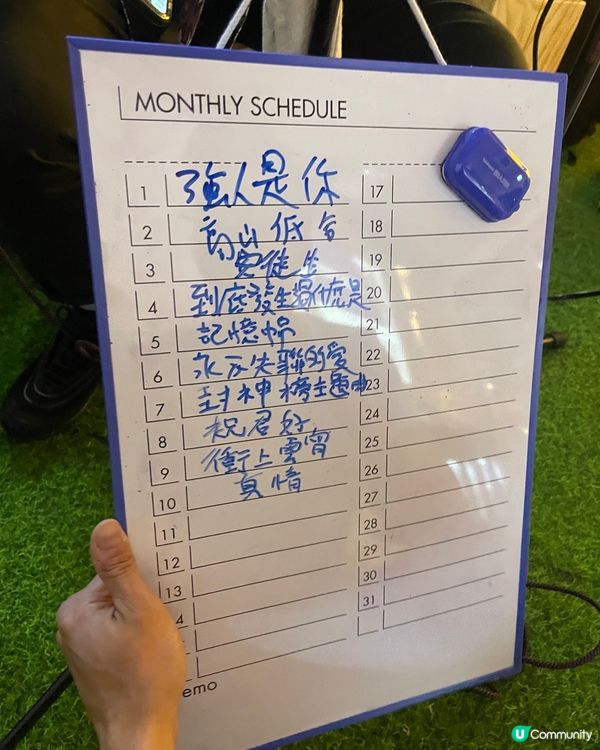 MONTHLY SCHEDULE
1 強人是你
2 高山低谷
3 安徒生
4 到底發生過什麼是
5 記憶棉
6 永不失聯的愛
7 封神榜主題曲
8 祝君好
9 衝上雲宵
10 真情
11
12
13
4
17
18
19
20
21
22
23
24
25
26
27
28
29
30
31
emo
U Community